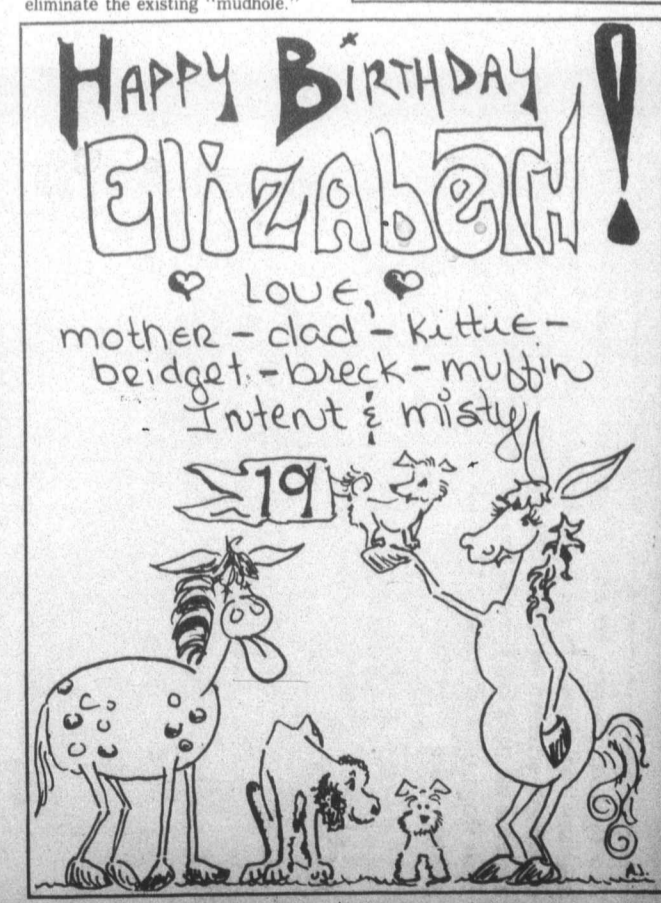 eliminate the existing "mudhole."
HAPPY BIRTHDAY
ElizAbeTH!
LOVE,
mother - dad - kittie -
beidget - breck - muffin
Intent & misty
19
A.J.